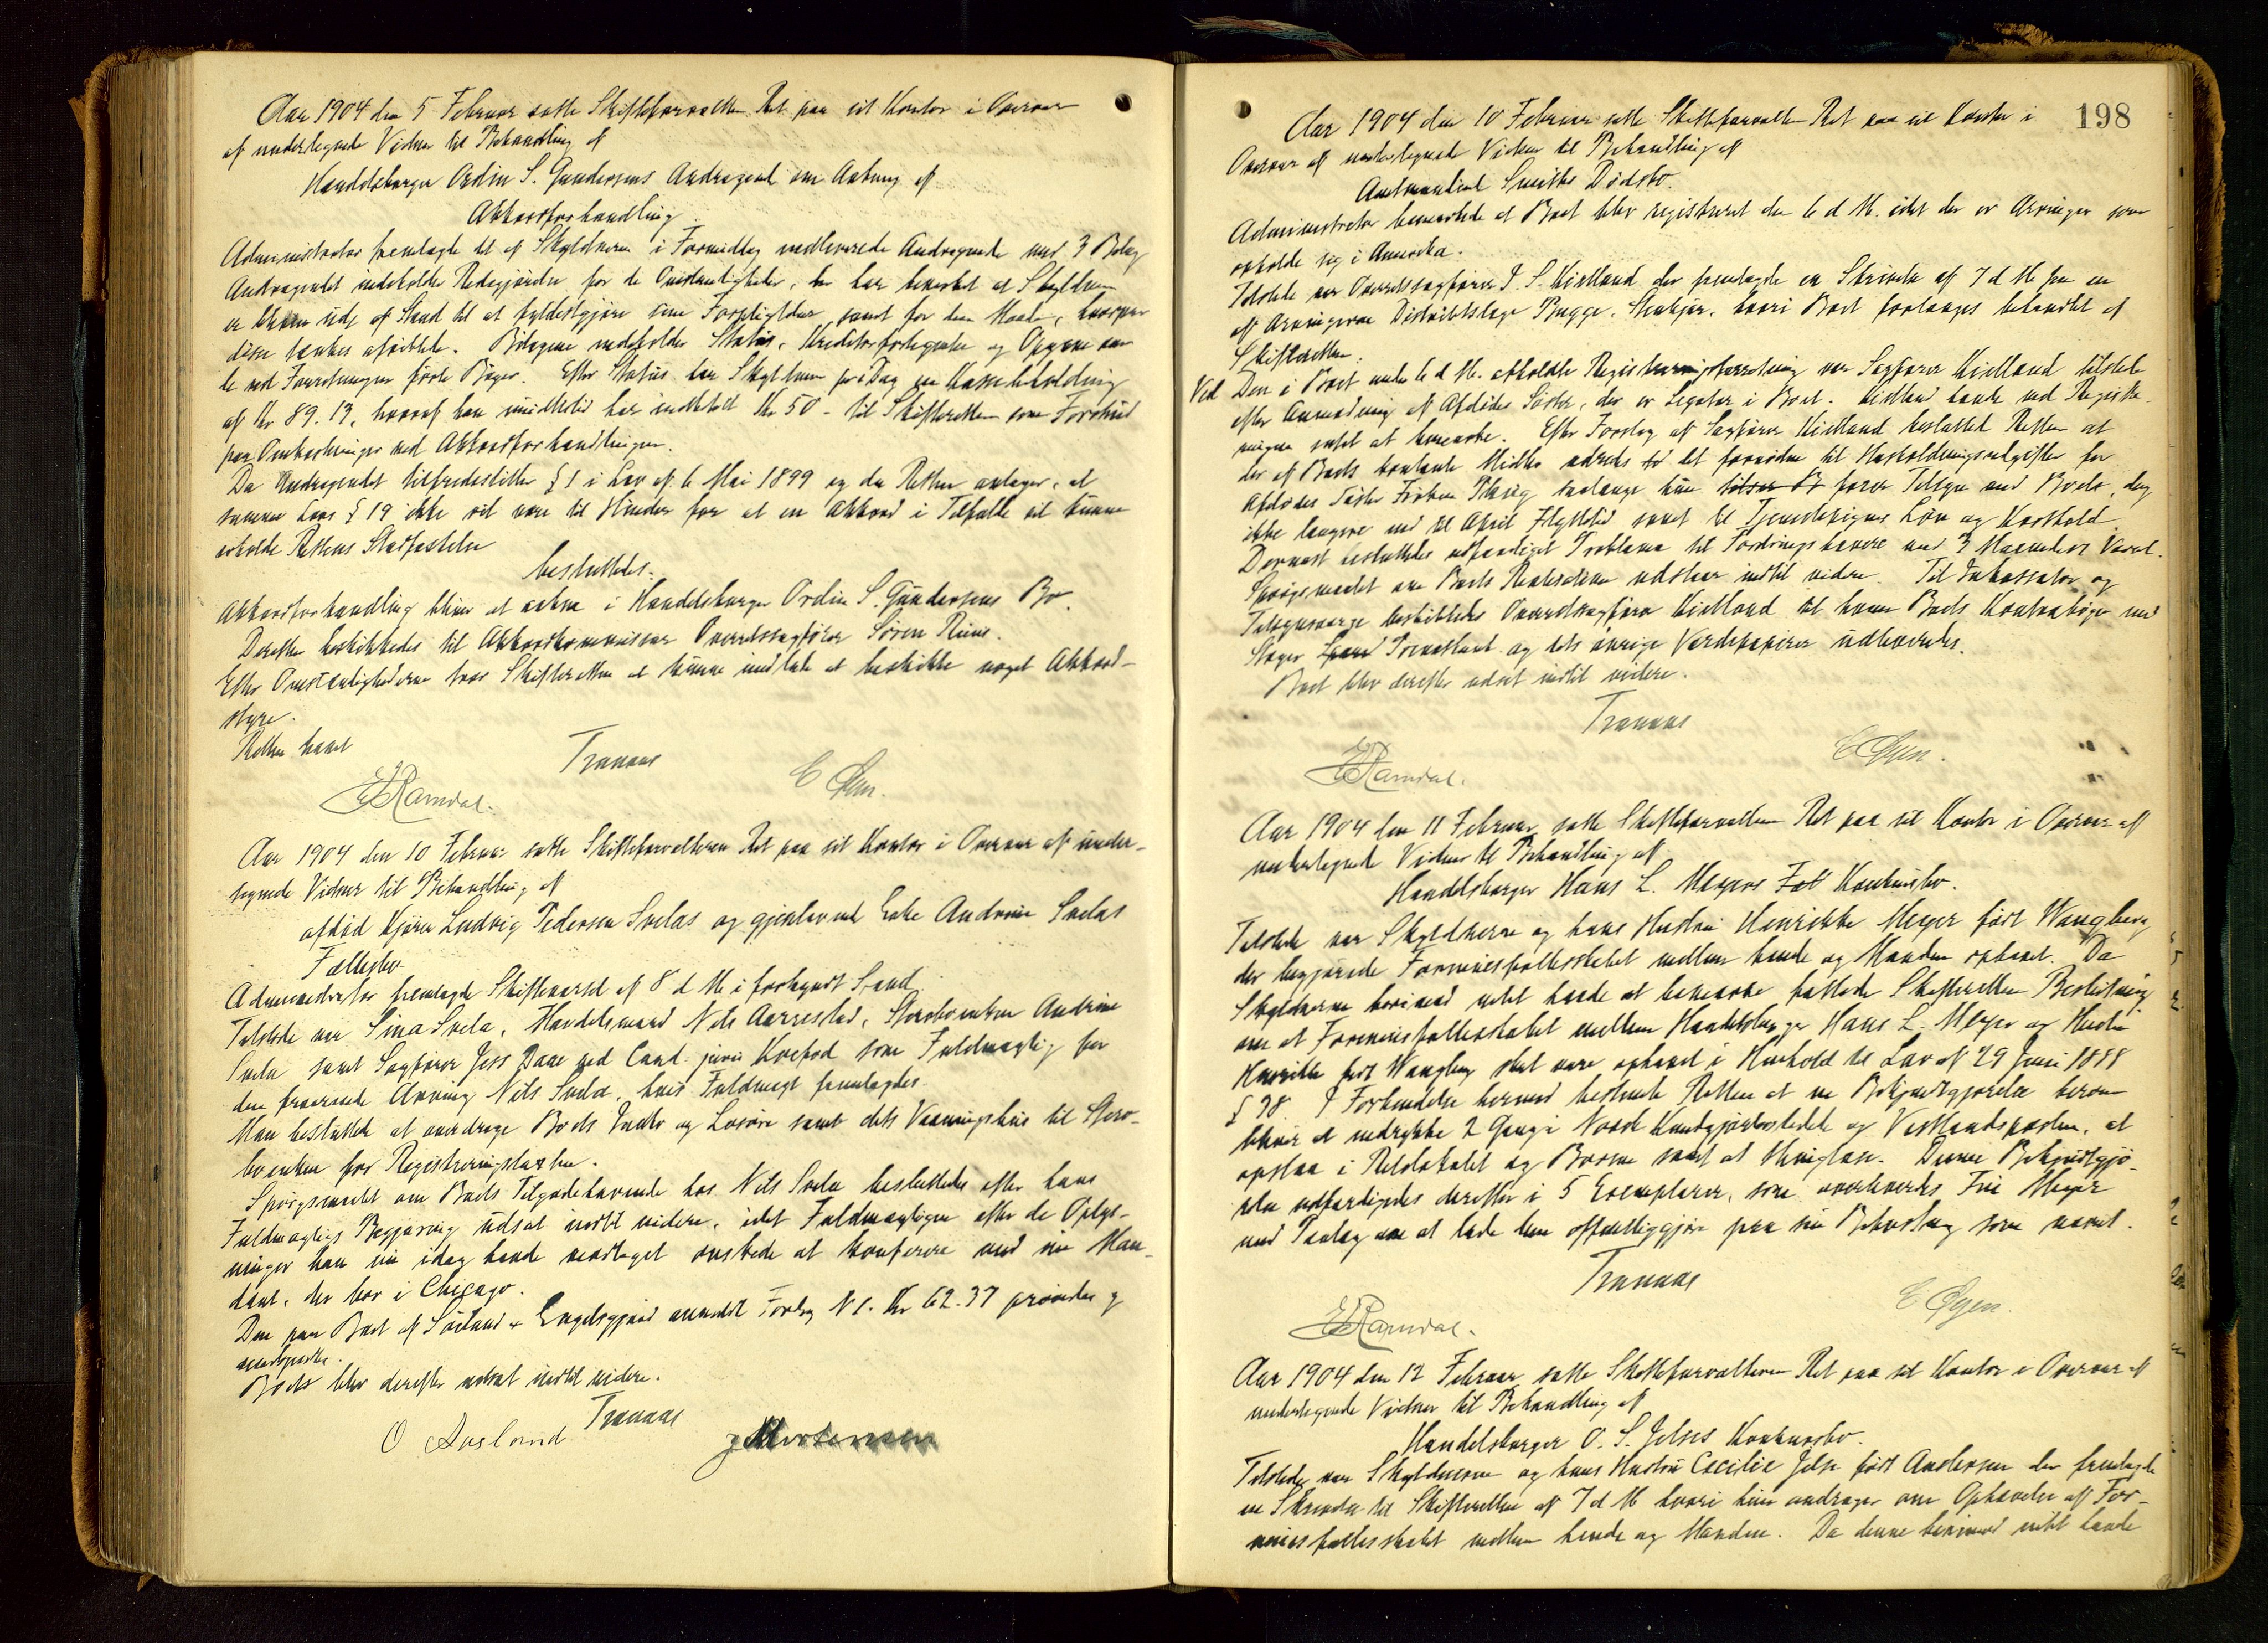 Aar 1904 den 5 Februar satte Skifteforvalteren Ret paa sit Kontor i Overvær
af undertegnede Vidner til Behandling af
Handelsborger Ordin S. Gundersens Andragende om Aabning af
Akkordforhandling
Administrator fremlagde det af Skyldneren i Formiddag indleverede Andragende med 3 Bilag
Andragendet indeholder Redegjørelse for de Omstændigheder, der har bevirket at Skyldneren
er ude af Stand til at fyldestgjøre sine Forpligtelser samt for den Maade, hvorpaa
disse tænkes afviklede. Bilagene indeholder Status, Kreditorfortegnelse og Opgave over
de ved Forretningen førte Bøger. Efter Status har Skyldneren pr i Dag en Kassebeholdning
af Kr 89.13, hvoraf han imidlertid har indbetalt Kr 50 - til Skifteretten som Forskud
paa Omkostninger ved Akkordforhandlingen.
Da Andragendet tilfredsstiller § 1 i Lov af 6 Mai 1899 og da Retten antager, at
samme Lovs § 19 ikke vil være til Hinder for at en Akkord i Tilfælde vil kunne
erholde Rettens Stadfæstelse
besluttedes:
Akkordforhandling bliver at aabne i Handelsborger Ordin S. Gundersens Bo.
Derefter beskikkedes til Akkordkommissær Overretssagfører Sören
Efter Omstændighederne tror Skifteretten at kunne undlade at beskikke noget Akkord-
styre.
Retten hævet
Tranaas
E Ramdal. C Øyen.
Aar 1904 den 10 Februar satte Skifteforvalteren Ret paa sit Kontor i Overvær af under-
tegnede Vidner til Behandling af
afdød Kjører Ludvig Pedersen Svelas og gjenlevende Enke Andrine Svelas
Fællesbo
Administrator fremlagde Skiftevarsel af 8 d M i forkyndt Stand.
Tilstede var Sina Svela, Handelsmand Nils Aarrestad, Storboenken Andrine
Svela samt Sagfører Jess Daae ved Cand. juris Koefod som Fuldmægtig for
den fraværende Arving Nils Svela, hvis Fuldmagt fremlagdes.
Man besluttede at overdrage Boets Indbo og Løsøre samt dets Vaaningshus til Storbo-
enken for Registreringstaxten.
Spørgsmaalet om Boets Tilgodehavende hos Nils Svela besluttedes efter hans
Fuldmægtigs Begjæring udsat indtil videre, idet Fuldmægtigen efter de Oplys-
ninger han nu idag havde modtaget ønskede at konferere med sin Man-
dant, der bor i Chicago.
Den paa Boet af Søiland & Engelsgjærd anmeldte Fordring N 1. Kr 62.37 prøvedes og
Boets blev derefter udsat indtil videre.
Tranaas
O Aasland J Mortensen
198
Aar 1904 den 10 Februar satte Skifteforvalteren Ret paa sit Kontor i
Overvær af undertegnede Vidner til Behandling af
Amtmandinde Smiths Dødsbo.
Administrator bemærkede at Boet blev registreret den 6 d M. idet der er Arvinger som
opholde sig i Amerika.
Tilstede var Overretssagfører J. S. Kielland der fremlagde en Skrivelse af 7 d M fra en
af Arvingerne Distriktslæge Bugge, Stenkjær, hvori Boet forlanges behandlet af
Skifteretten.
Ved Den i Boet under 6 d M. afholdte Registreringsforretning var Sagfører Kielland tilstede
efter Anmodning af Afdødes Søster, der er Legatar i Boet. Kielland havde ved Registre-
ringen intet at bemærke. Efter Forslag af Sagfører Kielland besluttede Retten at
der af Boets kontante Midler udredes det fornødne til Husholdningsudgifter for
Afdødes Søster Frøken saalænge hun fører Tilsyn med Boets, dog
ikke længere end til April Flyttetid samt til Tjenestepigens Løn og Kosthold.
Dernæst besluttedes udfærdiget Proklama til Fordringshavere med 3 Maaneders Varsel.
Spørgsmaalet om Boets Realisation udstaar indtil videre. Til Inkassator og
Tilsynsværge beskikkedes Overretssagfører Kielland til hvem Boets Kontrabøger med
og dets øvrige Værdipapirer udleveredes.
Boet blev derefter udsat indtil videre.
Tranaas
E Ramdal. C Øyen.
Aar 1904 den 11 Februar satte Skifteforvalteren Ret paa sit Kontor i Overvær af
undertegnede Vidner til Behandling af
Handelsborger Hans L. Meyers Konkursbo.
Tilstede var Skyldneren og hans Hustru Henrikke Meyer født Wangberg
der begjærede Formuesfællesskabet mellem hende og Manden ophævet. Da
Skyldneren herimod intet havde at bemærke fattede Skifteretten Beslutning
om at Formuesfællesskabet mellem Handelsborger Hans L. Meyer og Hustru
Henrikke født Wangberg skal være ophævet i Henhold til Lov af 29 Juni 1888
§ 38. I Forbindelse hermed bestemte Retten at en Bekjendtgjørelse herom
bliver at indrykke 2 Gange i Norsk Kundgjørelsestidende og Vestlandsposten, at
opslaa i Retslokalet og Børsen samt at thinglæse. Denne Bekjendtgjø-
relse udfærdigedes derefter i 5 Exemplarer, som overleveredes Fru Meyer
med Paalæg om at lade dem offentliggjøre paa sin Bekostning som nævnt.
Tranaas
E Ramdal. C Øyen.
Aar 1904 den 12 Februar satte Skifteforvalteren Ret paa sit Kontor i Overvær af
undertegnede Vidner til Behandling af
Handelsborger O. S. Jelses Konkursbo.
Tilstede var Skyldneren og hans Hustru Cecilie Jelse født Andersen der fremlagde
en Skrivelse til Skifteretten af 7 d M hvori hun andrager om Ophævelse af For-
muesfællesskabet mellem hende og Manden. Da denne herimod intet havde